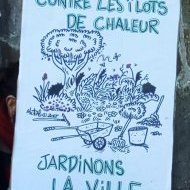 CONTRE LES ILOTS
DE CHALEUR
JARDINONS
LA VILLE